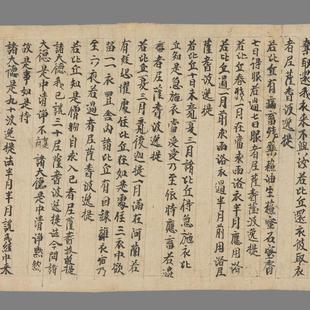 奪取還我衣來不與汝若比丘還衣彼取衣
者尼薩耆波逸提
若比丘有病畜殘藥蘇油生蘇蜜石蜜齊
七日得服若過七日服者尼薩耆波逸提
若比丘春殘一月在當求雨浴衣半月應用浴
若比丘過一月前求雨浴衣半月前用浴尼
薩耆波逸提
若比丘十日未竟夏三月諸比丘得急施衣比
丘知是急施衣當受受已乃至衣時應畜若過
畜者尼薩耆波逸提
若比丘夏三月竟後迦提一月滿在阿蘭若
有疑恐懼處住比丘在如是處住三衣中欲
留一一衣置舍內諸比丘有因緣離衣宿乃
至六夜若過者尼薩耆波逸提
若比丘知是僧物自求入己者尼薩耆波逸提
諸大德我已說三十尼薩耆波逸提法今問諸
大德是中清淨不 諸大德是中清淨默然
故是事如是持
諸大德是九十波逸提法半月半月說戒經中來